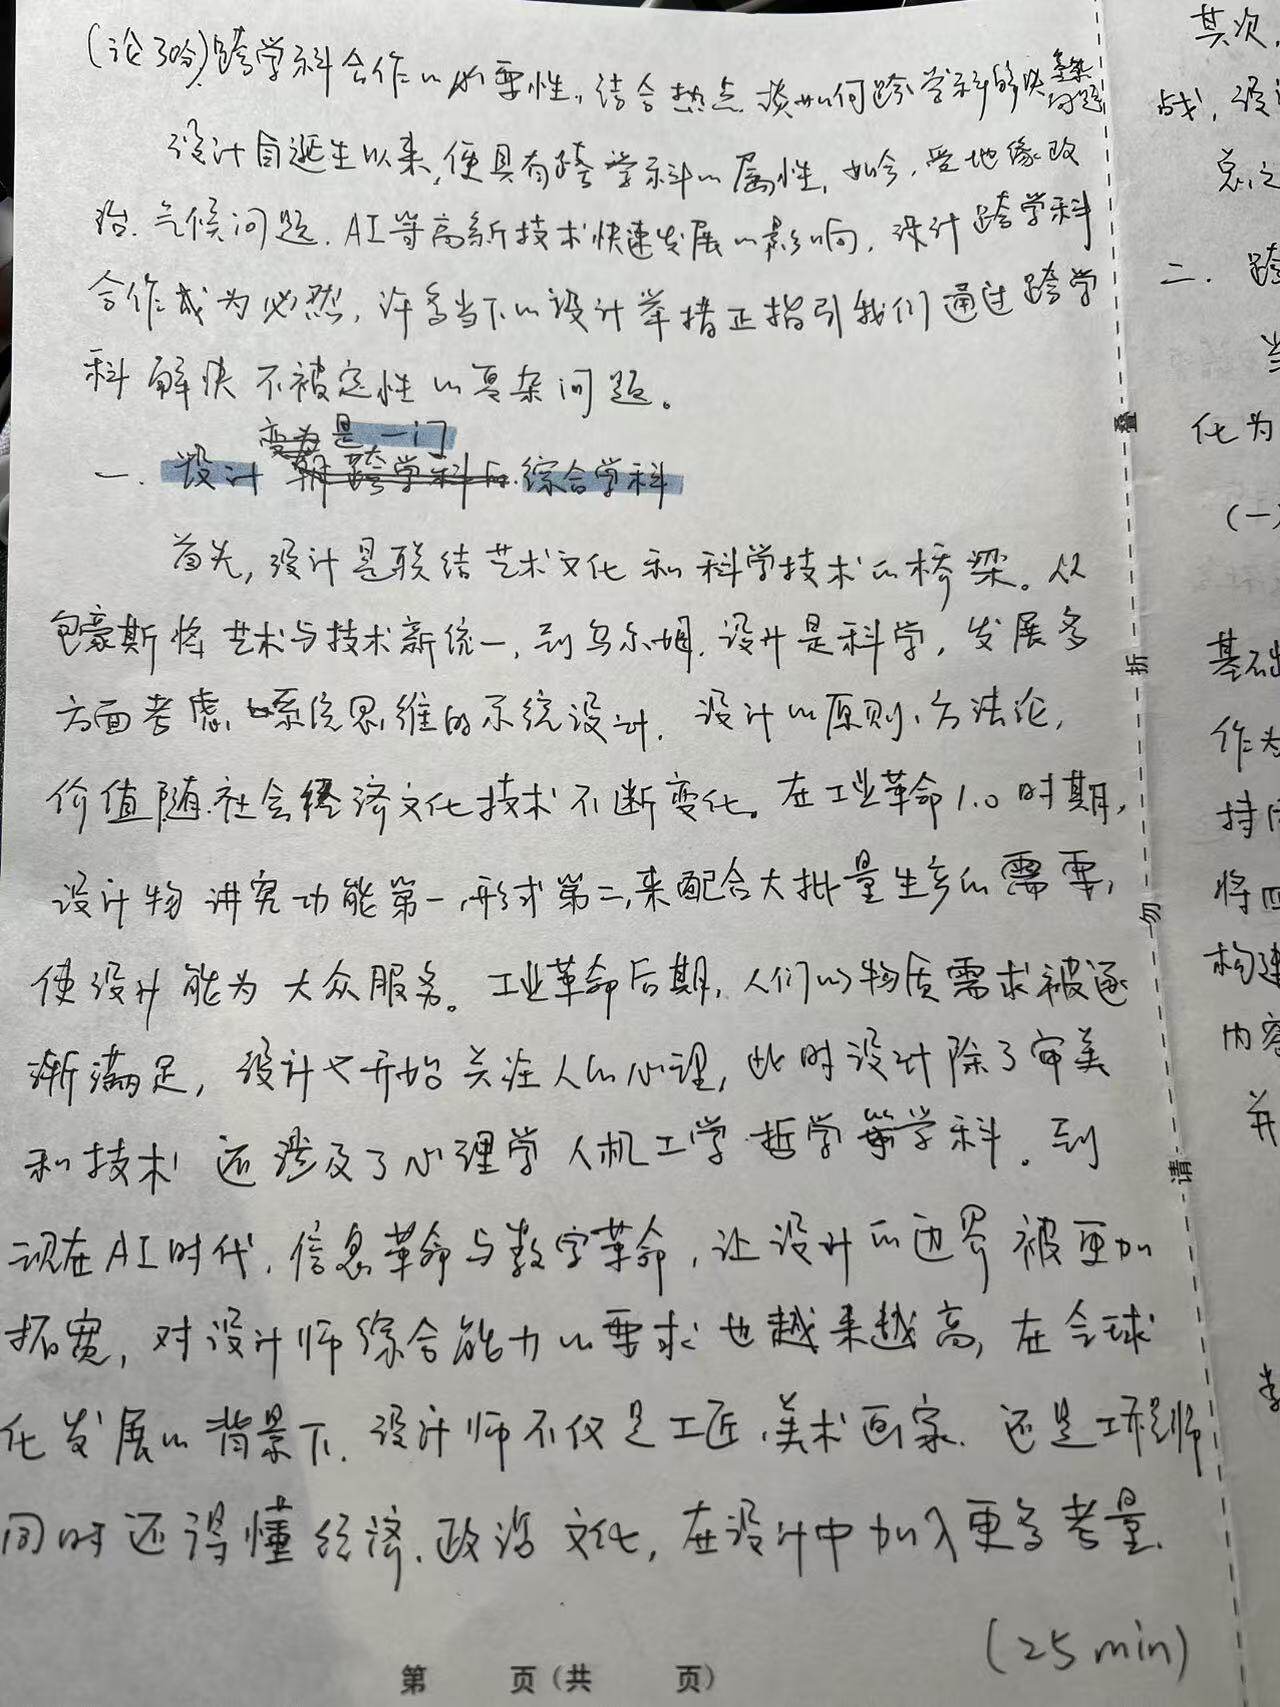 (论30分)跨学科合作的必要性,结合热点谈如何跨学科解决复杂问题
设计自诞生以来,便具有跨学科的属性,如今,受地缘政
治、气候问题、AI等高新技术快速发展的影响,设计跨学科
合作成为必然,许多当下的设计举措正指引我们通过跨学
科解决不被定性的复杂问题。
变为是一门
一.设计 跨学科的综合学科
首先,设计是联结艺术文化和科学技术的桥梁。从
包豪斯将艺术与技术新统一,到乌尔姆,设计是科学,发展多
方面考虑、系统思维的系统设计,设计的原则、方法论,
价值随社会经济文化技术不断变化。在工业革命1.0时期,
设计物讲究功能第一,形式第二,来配合大批量生产的需要,
使设计能为大众服务。工业革命后期,人们的物质需求被逐
渐满足,设计也开始关注人的心理,此时设计除了审美
和技术还涉及了心理学人机工学哲学等学科。到
现在AI时代,信息革命与数字革命,让设计的边界被更加
拓宽,对设计师综合能力的要求也越来越高,在全球
化发展的背景下,设计师不仅是工匠、美术画家,还是工程师
同时还得懂经济、政治文化,在设计中加入更多考量.
(25min)
第 页(共 页)
叠
折
勿
请
其次,
战,设计
总之
二.跨
当
化为
(一)
基础
作为
持
将四
构建
内容
并